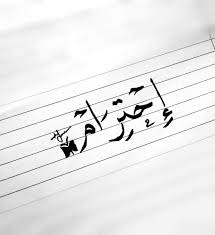 إحترام